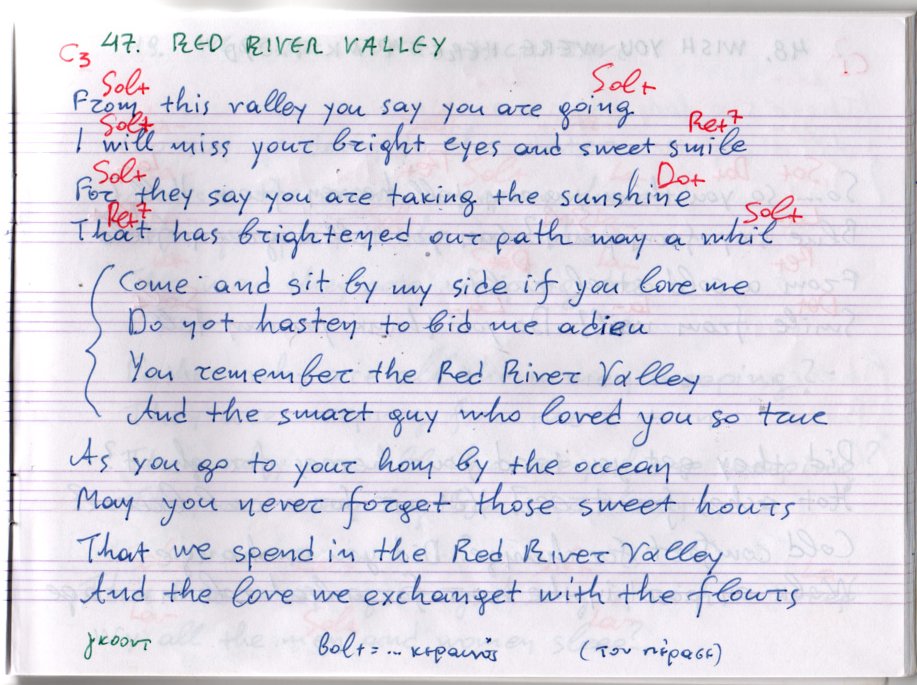 C3 47. RED RIVER VALLEY
Sol+ Sol+
From this valley you say you are going
Sol+ Re+7
I will miss your bright eyes and sweet smile
Sol+ Do+
For they say you are taking the sunshine
Re+7 Sol+
That has brightened our path way a whil
Come and sit by my side if you love me
Do not hasten to bid me adieu
You remember the Red River Valley
And the smart guy who loved you so true
As you go to your hom by the occean
May you never forget those sweet hours
That we spend in the Red River Valley
And the love we exchanget with the flowrs
γκοοντ βολτ = ... κεραυνός (τον πέρασε)